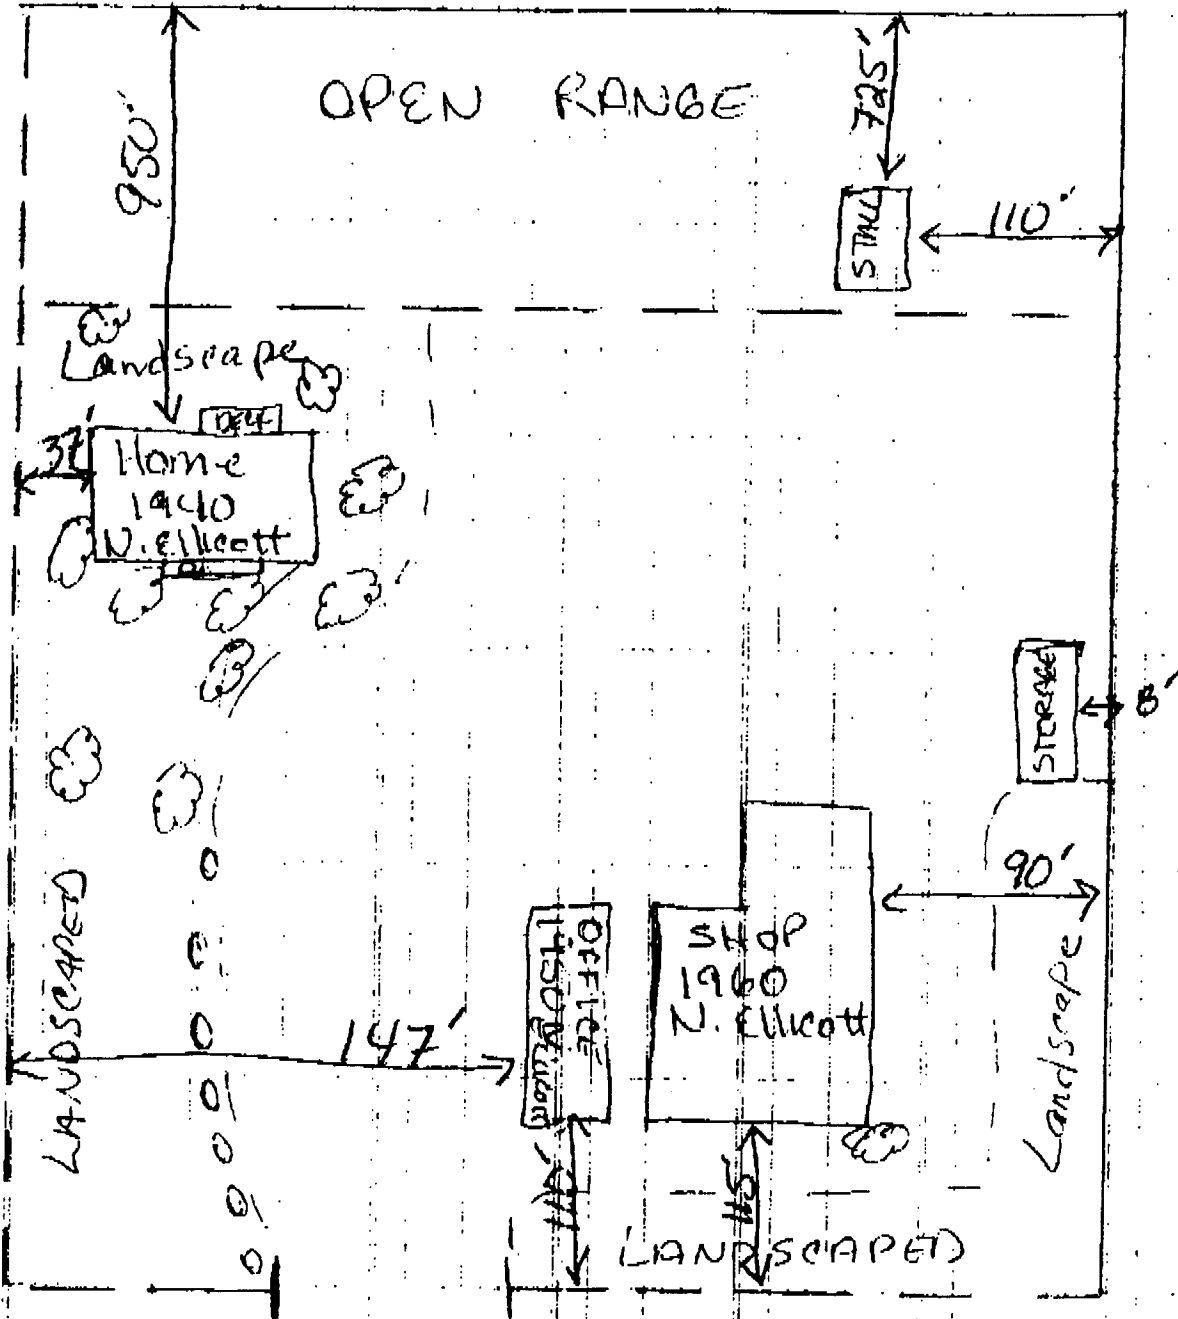 OPEN RANGE
950'
725'
STALL
110'
Landscape
DECK
37'
Home
1940
N. Ellicott
STORAGE
8'
90'
LANDSCAPED
OFFICE
SHOP
1960
N. Ellicott
Landscape
147'
115'
LANDSCAPED